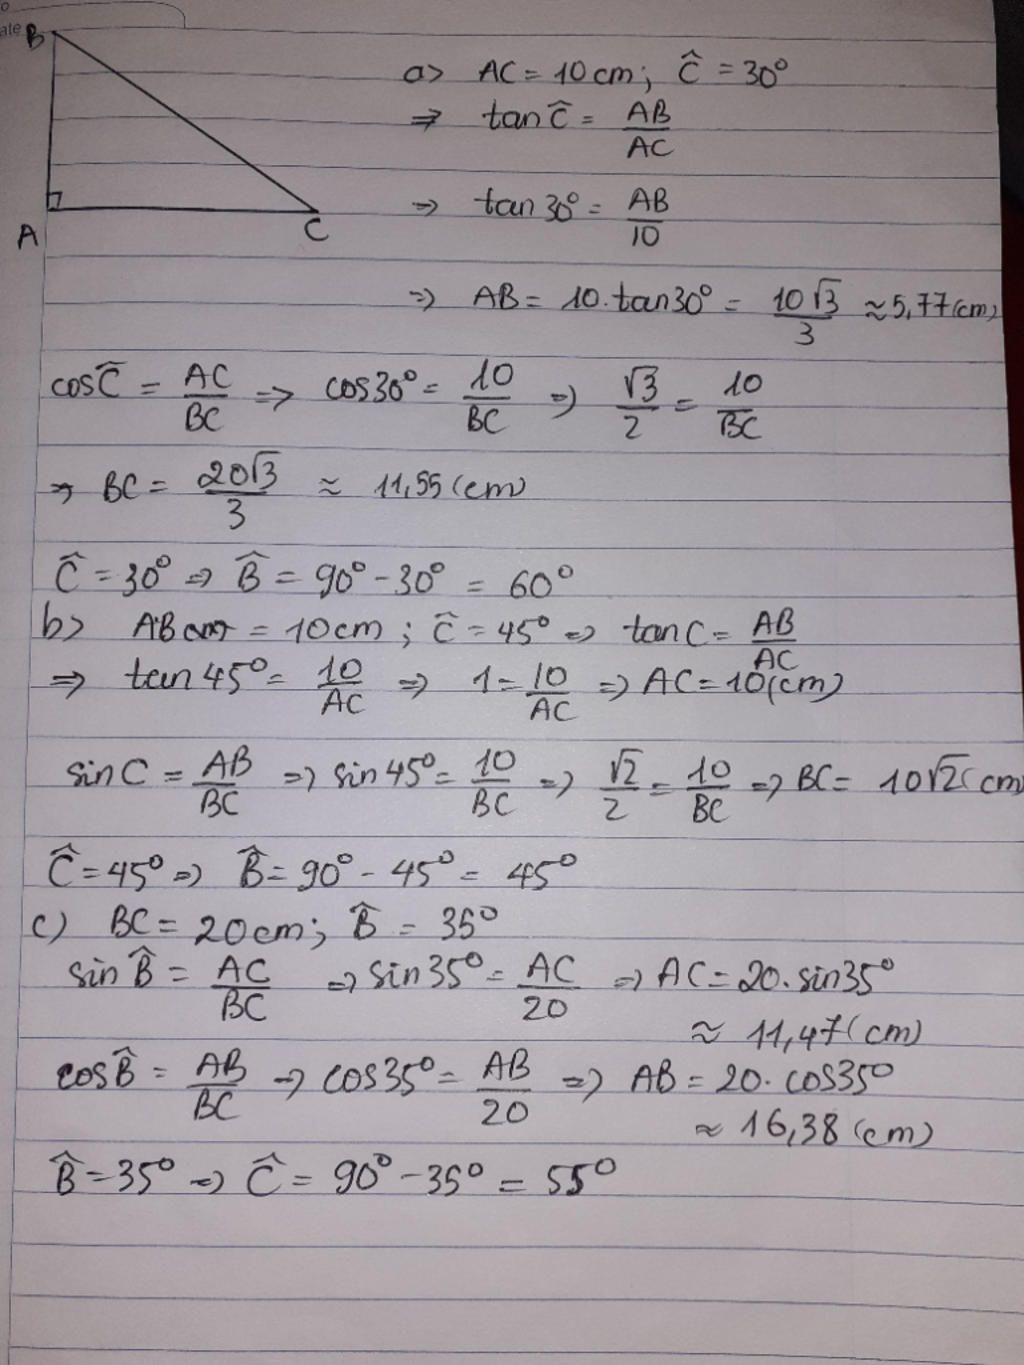 ate
B
A
C
a> AC = 10cm; Ĉ = 30°
⇒ tan Ĉ = AB/AC
⇒ tan 30° = AB/10
⇒ AB = 10.tan30° = 10√3/3 ≈ 5,77(cm)
cosĈ = AC/BC ⇒ cos30° = 10/BC ⇒ √3/2 = 10/BC
⇒ BC = 20√3/3 ≈ 11,55(cm)
Ĉ = 30° ⇒ B̂ = 90° - 30° = 60°
b> AB = 10cm; Ĉ = 45° ⇒ tanC = AB/AC
⇒ tan 45° = 10/AC ⇒ 1 = 10/AC ⇒ AC = 10(cm)
sinC = AB/BC ⇒ sin45° = 10/BC ⇒ √2/2 = 10/BC ⇒ BC = 10√2(cm
Ĉ = 45° ⇒ B̂ = 90° - 45° = 45°
c) BC = 20cm; B̂ = 35°
sin B̂ = AC/BC ⇒ sin35° = AC/20 ⇒ AC = 20.sin35°
≈ 11,47(cm)
cosB̂ = AB/BC ⇒ cos35° = AB/20 ⇒ AB = 20.cos35°
≈ 16,38(cm)
B̂ = 35° ⇒ Ĉ = 90° - 35° = 55°